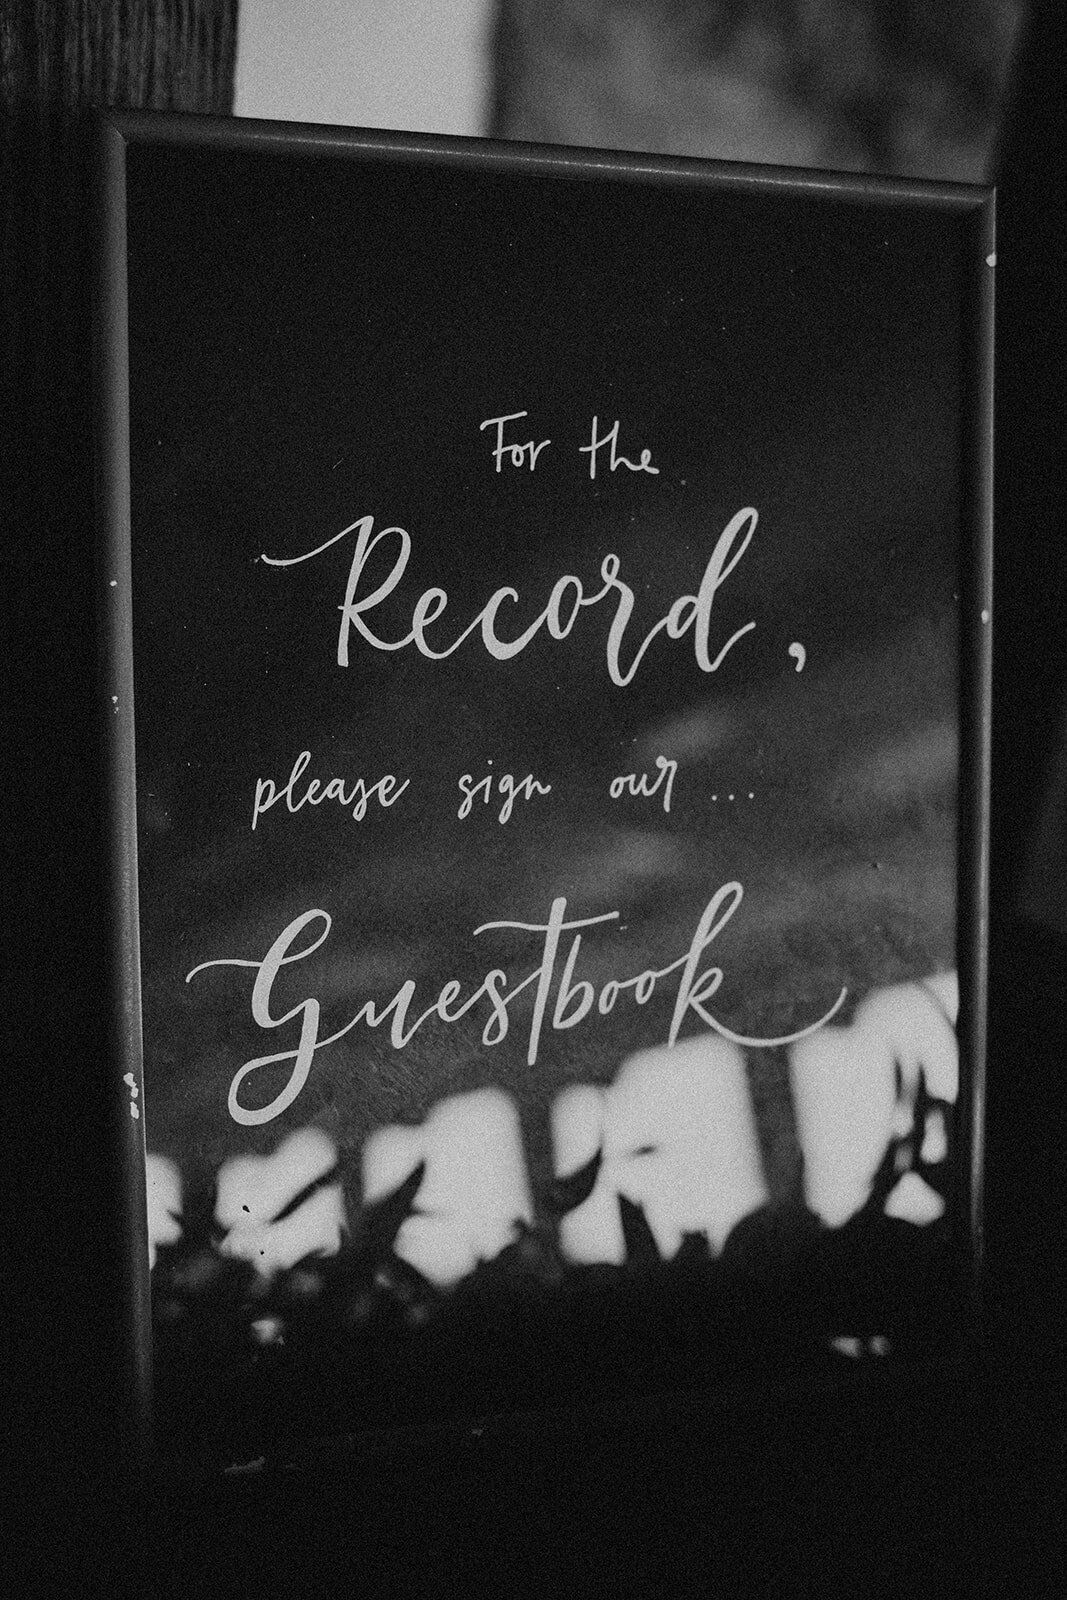 For the
Record,
please sign our...
Guestbook